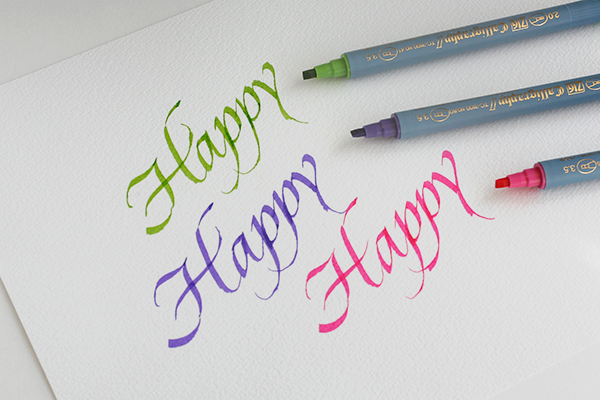 Happy
Happy
Happy
2.0 ZIG Calligraphy 3.5
ZIG Calligraphy 3.5
3.5